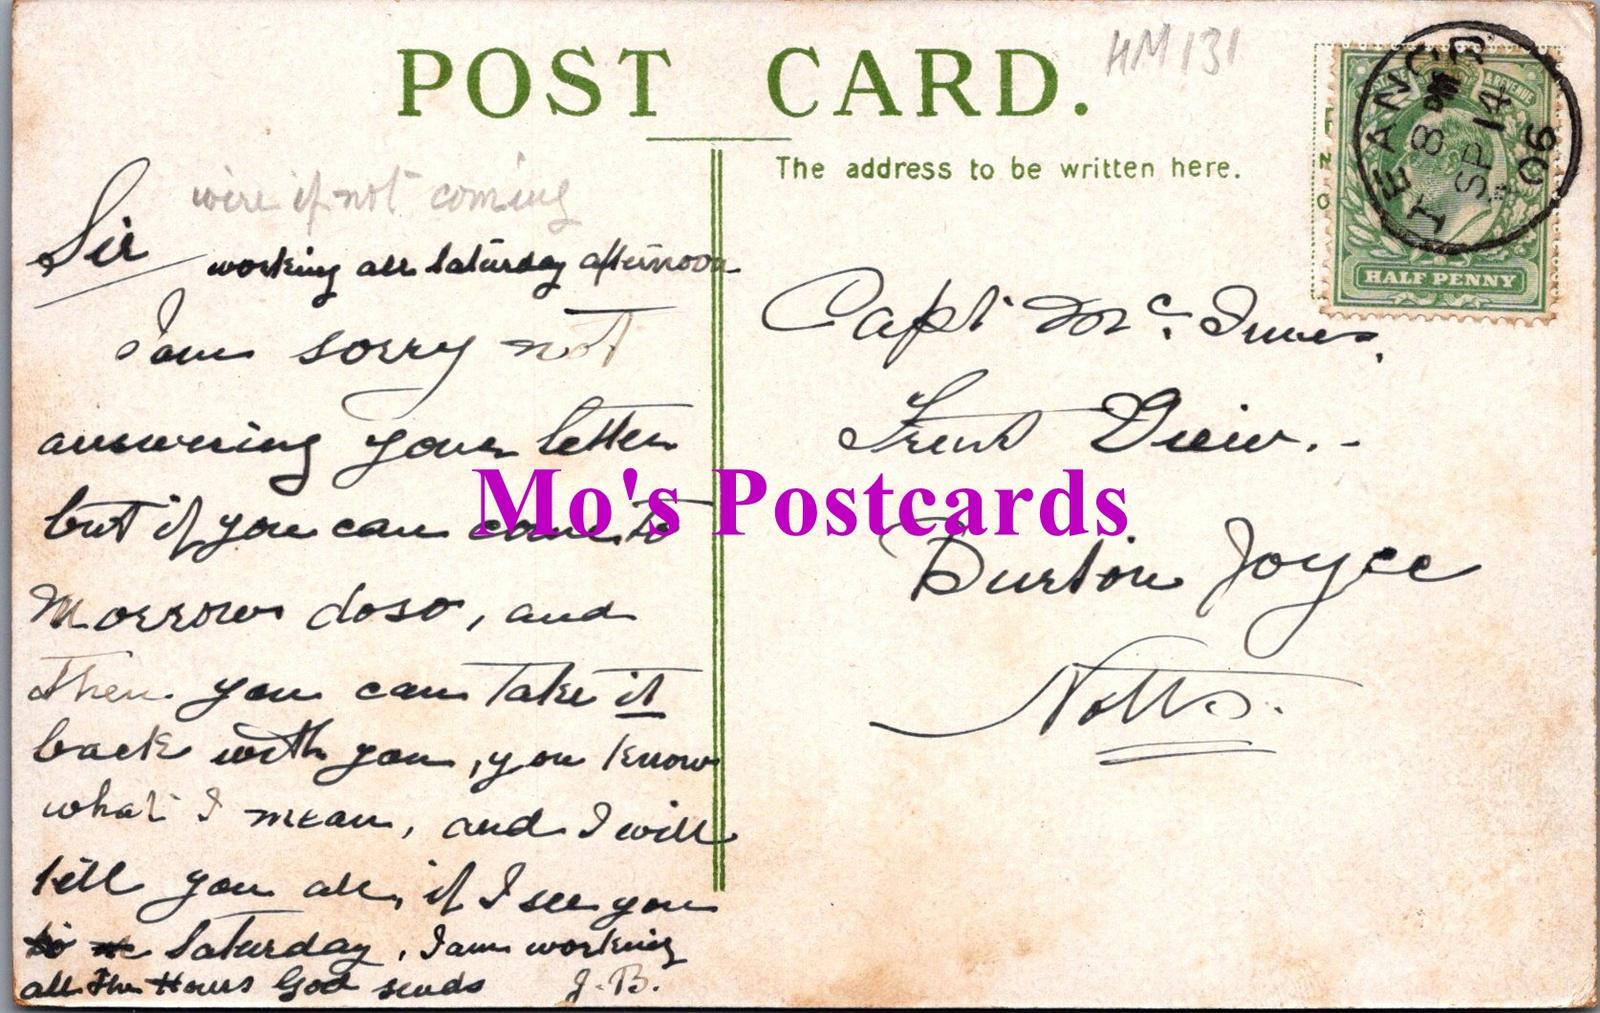 POST CARD.
HM 131
The address to be written here.
LEANGER
8 PM
SP 14
06
HALF PENNY
wire if not coming
Sir
working all Saturday afternoon
I am sorry not
answering your letter
but if you can come to
Morrow doso, and
Then you can Take it
back with you, you know
what I mean, and I will
tell you all, if I see you
Saturday, I am working
all The Hours God sends J.B.
Capt Mc. Innes,
Trent View.-
Burton Joyce
Notts.
Mo's Postcards